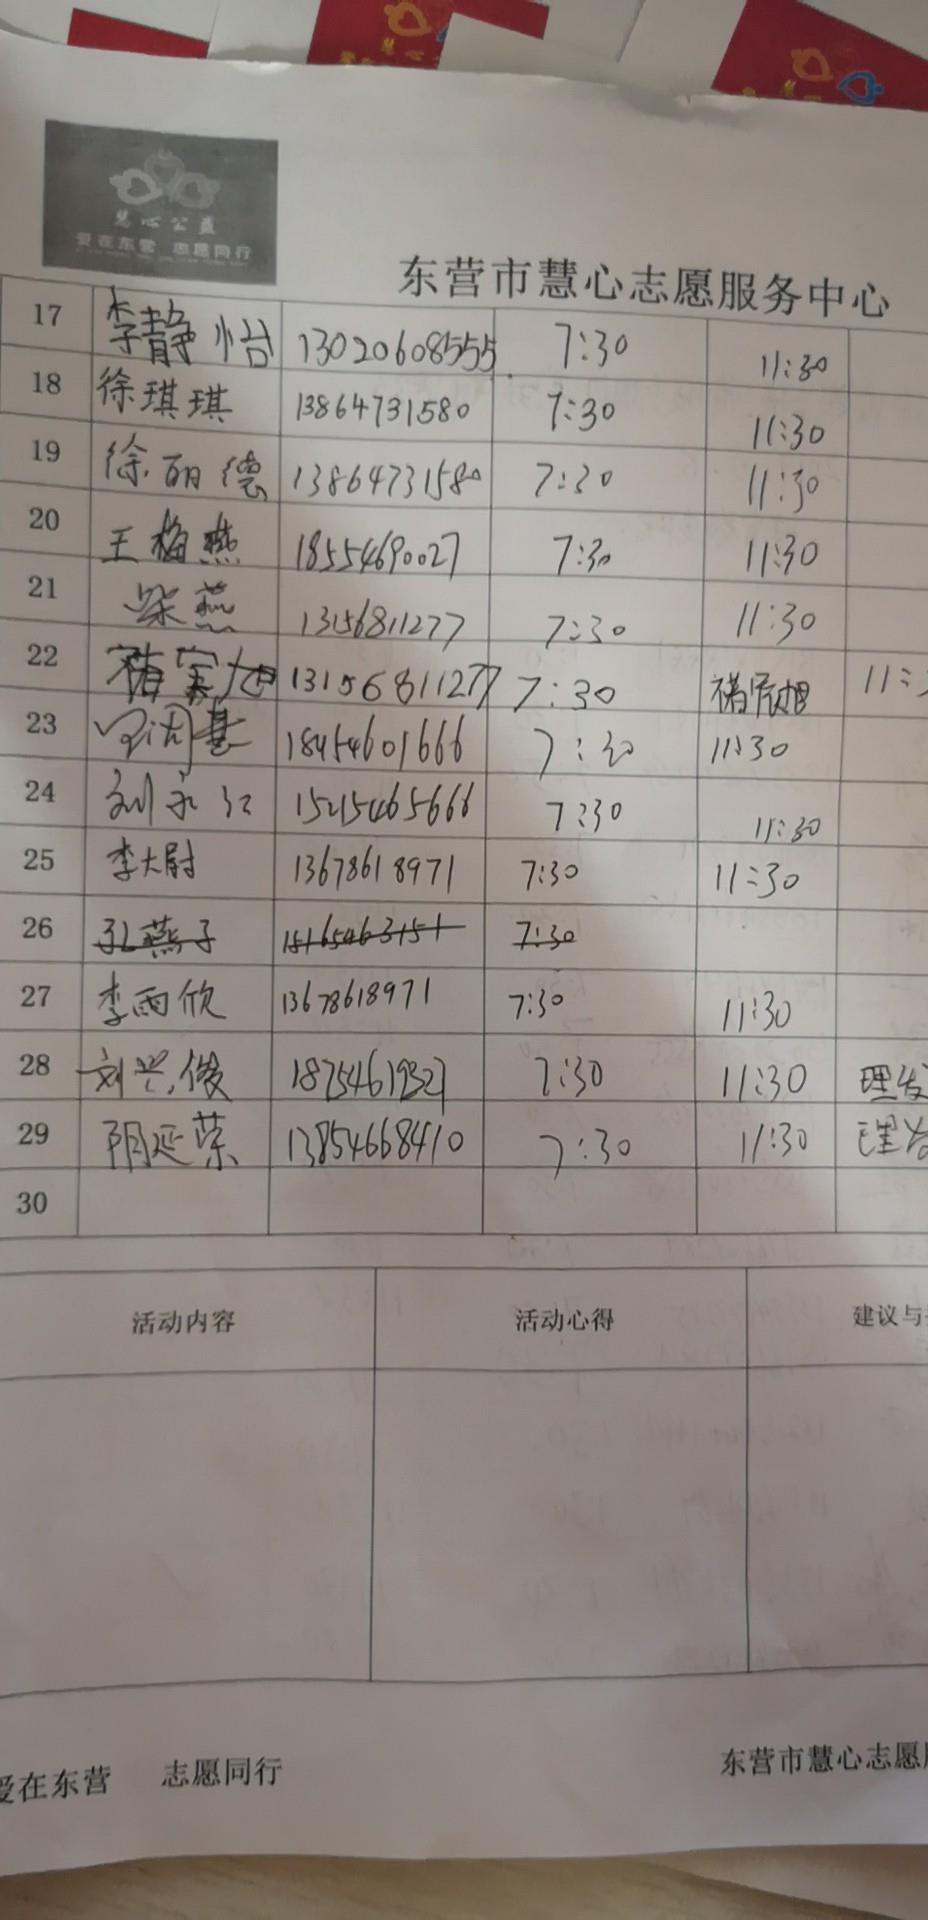 慧心公益
爱在东营 志愿同行
东营市慧心志愿服务中心
17 李静怡 13020608555 7:30 11:30
18 徐琪琪 13864731580 7:30 11:30
19 徐丽德 13864731580 7:30 11:30
20 王梅燕 18554690027 7:30 11:30
21 柴燕 13156811277 7:30 11:30
22 13156811277 7:30 11:3
23 18454601666 7:30 11:30
24 刘永江 15215465666 7:30 11:30
25 李大尉 13678618971 7:30 11:30
26 孔燕子 15165463151 7:30
27 李雨欣 13678618971 7:30 11:30
28 刘兴俊 18754619327 7:30 11:30 理发
29 阴延荣 13854668410 7:30 11:30 理发
30
活动内容 活动心得 建议与
爱在东营 志愿同行 东营市慧心志愿